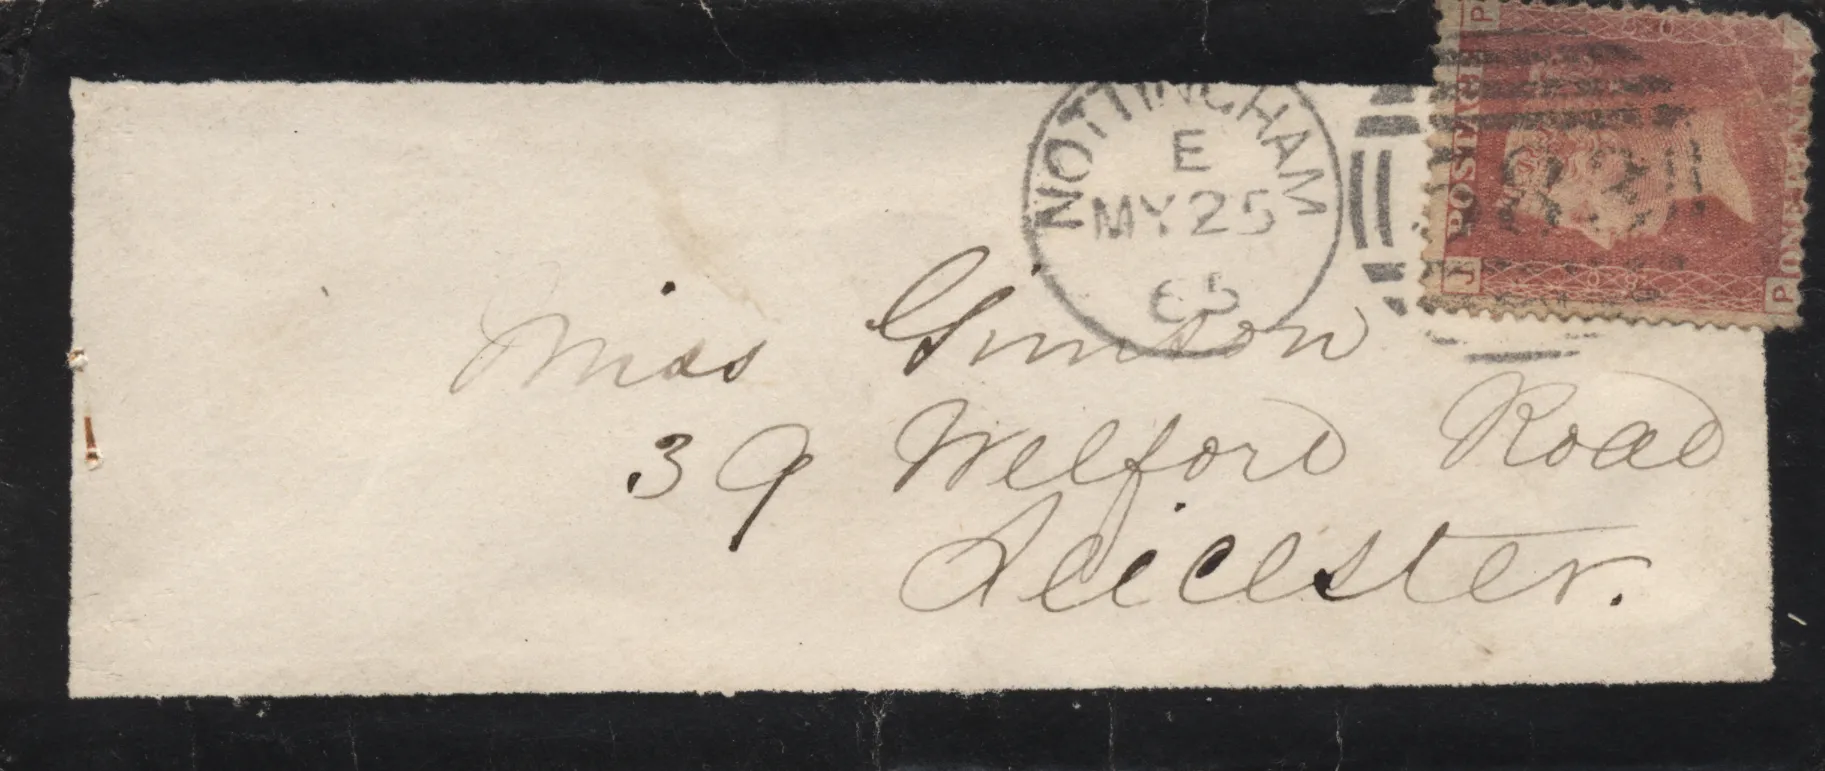 NOTTINGHAM
E
MY 25
65
POSTAGE
ONE PENNY
P
J
P
Miss Gimson
39 Welford Road
Leicester.